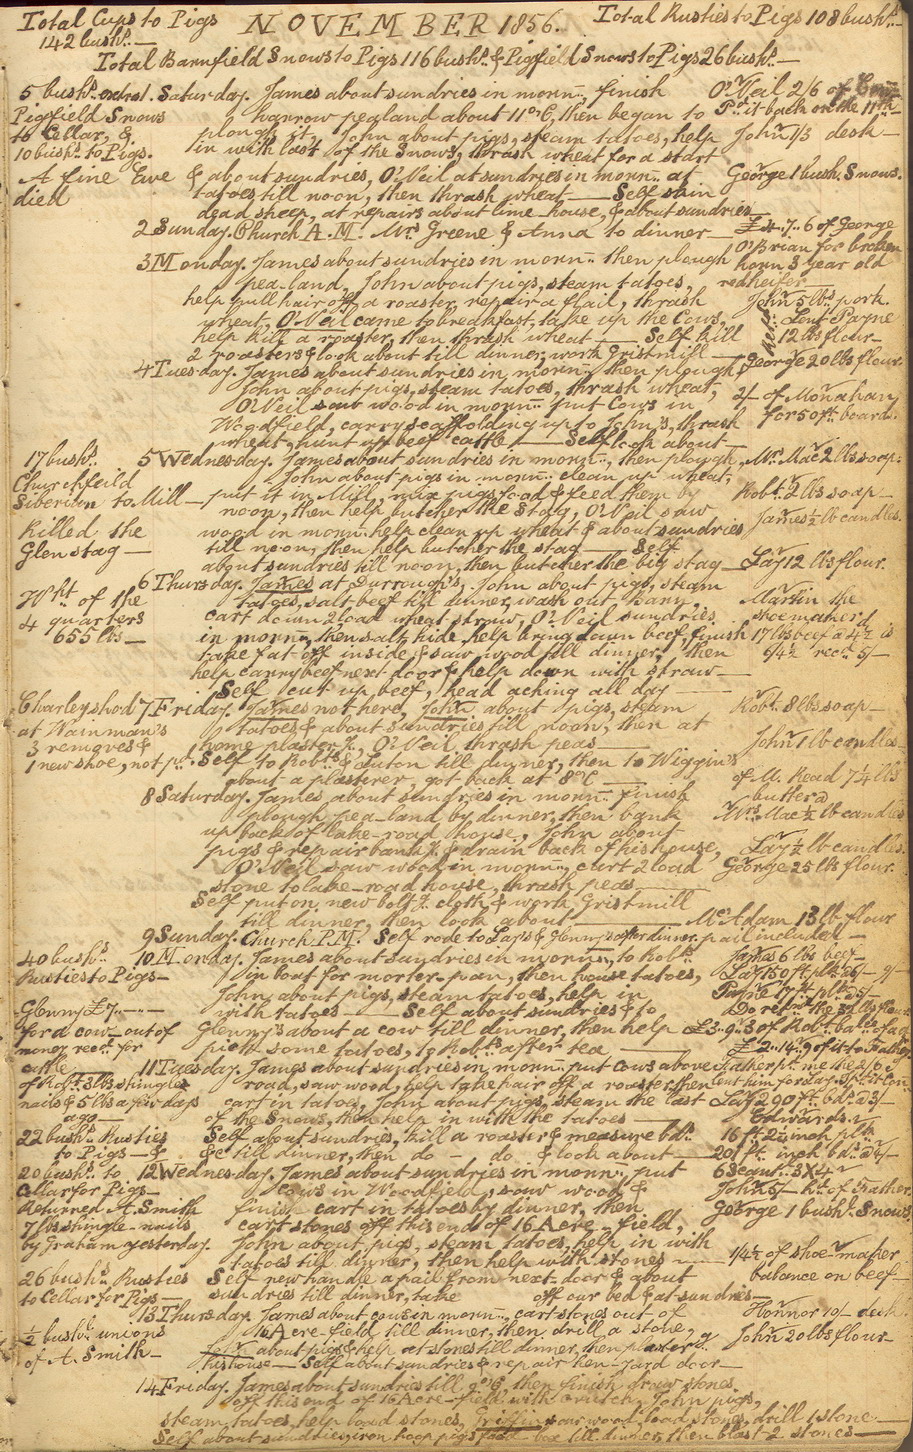 Total Cups to Pigs NOVEMBER 1856. Total Rusties to Pigs 108 bush.s
142 bush.s
Total Barnfield Snows to Pigs 116 bush.s & Pigfield Snows to Pigs 26 bush.s
5 bush.s 1. Saturday. James about sundries in morn.g finish O'Neil 2/6 of
Pigfield Snows harrow pealand about 11 oC, then began to P.d it back on the 11th
to Cellar, & plough it, John about pigs, steam tatoes, help John 1/3 desk
10 bush.s to Pigs. in with last of the Snows, thrash wheat for a start
A fine Ewe & about sundries, O'Neil at sundries in morn.g at George 1 bush. Snows.
died tatoes till noon, then thrash wheat — Self skin
dead sheep, at repairs about lime-house, & about sundries
2 Sunday. Church A.M. Mrs Greene & Anna to dinner £4..7..6 of George
O'Brian for broken
3 Monday. James about sundries in morn.g then plough horn 3 year old
pea-land, John about pigs, steam tatoes, red heifer
help pull hair off a roaster, repair a flail, thrash John 5 lbs pork.
wheat, O'Neil came to breakfast, take up the Cows, Lent Payne
help kill a roaster, then thrash wheat — Self kill 12 lbs flour
2 roasters & look about till dinner, work Gristmill George 20 lbs flour
4 Tuesday. James about sundries in morn.g then plough,
John about pigs, steam tatoes, thrash wheat, 2/- of Monahan
O'Neil saw wood in morn.g put Cows in for 50 ft board.
Woodfield, carry scaffolding up to John's, thrash
wheat, hunt up beef cattle — Self look about
17 bush.s 5 Wednesday. James about sundries in morn.g, then plough, Mrs Mac 2 lbs soap.
Churchfeild John about pigs in morn.g clean up wheat,
Siberian to Mill put it in Mill, mix pigs food & feed them by Robt. 2 lbs soap
Killed the noon, then help butcher the Stag, O'Neil saw
Glen stag wood in morn.g help clean up wheat & about sundries James ½ lb candles.
till noon, then help butcher the stag — Self
about sundries till noon, then butcher the big stag Lay 12 lbs flour.
6 Thursday. James at Durrough's, John about pigs, steam
Wht of the tatoes, salt beef till dinner, wash out Barn, Martin the
4 quarters cart down 2 load wheat straw, O'Neil sundries shoemaker
655 lbs in morn.g, then salt hide, help bring down beef, finish 17 lbs beef a 4½ is
take fat off inside & saw wood till dinner, then 6/4½ recd. 5/-
help carry beef next door & help down with straw
Self cut up beef, head aching all day
Charley shod 7 Friday. James not here, John about pigs, steam Robt. 8 lbs soap
at Wainman's tatoes & about sundries till noon, then at
3 removes & home plaster &c, O'Neil thrash peas John 1 lb candles
1 new shoe, not pd. Self to Robt's & Seuton till dinner, then to Wiggin's
about a plasterer, got back at 8 oC of M. Read 7¼ lbs
8 Saturday. James about sundries in morn.g finish butter @
plough pea-land by dinner, then bank Mrs Mac ½ lb candles
up back of lake-road house, John about
pigs & repair bank & drain back of his house, Lay ½ lb candles.
O'Neil saw wood in morn.g, cart 2 load George 25 lbs flour.
stone to lake-road house, thrash peas
Self put on new bolt cloth & work Gristmill
till dinner, then look about McAdam 13 lb flour
9 Sunday. Church P.M. Self rode to Lay's & Glenny's after dinner. pail included
40 bush.s 10 Monday. James about sundries in morn.g, to Robt's James 6 lbs beef
Rusties to Pigs in boat for morter-pan, then house tatoes, Lay 150 ft plk
John about pigs, steam tatoes, help in Payne 17 ft plk a 5/-
Glenny £7.. with tatoes — Self about sundries & to Do retd. the 12 lbs flour
for a cow out of Glenny's about a cow till dinner, then help £3..9..3 of Robt. bale. of
money recd. for pick some tatoes, to Robt's after tea £2..14..9 of it to Father
cattle 11 Tuesday. James about sundries in morn.g put cows above Father
of Robt. 3 lbs shingle road, saw wood, help take hair off a roaster, then
nails & 5 lbs a few days cart in tatoes, John about pigs, steam the last Lay 290 ft bds. a 3/-
ago of the Snows, then help in with the tatoes Edwards.
22 bush.s Rusties Self about sundries, kill a roaster & measure bds. 16 ft 2½ inch plk
to Pigs — & &c till dinner, then do - do & look about 201 ft inch bds.
20 bush.s to 12 Wednesday. James about sundries in morn.g put 6 Scant. 3x4
Cellar for Pigs Cows in Woodfield, saw wood & John 5/- of Father
Returned A. Smith finish cart in tatoes by dinner, then George 1 bush. Snows.
7 lbs shingle-nails cart stones off this end of 16 Acre-field,
by Graham yesterday. John about pigs, steam tatoes, help in with
tatoes till dinner, then help with stones 1/4½ of shoe-maker
26 bush.s Rusties Self new handle a pail from next-door & about balance on beef
to Cellar for Pigs sundries till dinner, take off our bed & at sundries
13 Thursday. James about cows in morn.g cart stones out of Honnor 10/- desk
½ bush. unions 16 Acre-field till dinner, then drill a stone,
of A. Smith John about pigs & help at stones till dinner, then plaster John 20 lbs flour
his house — Self about sundries & repair hen-yard door
14 Friday. James about sundries till 9 oC, then finish draw stones
off this end of 16 Acre-field with John pigs,
steam tatoes, help load stones, Griffin saw wood, load stones, drill 1 stone
Self about sundries, iron hoop pigs food-box till dinner, then blast 2 stones